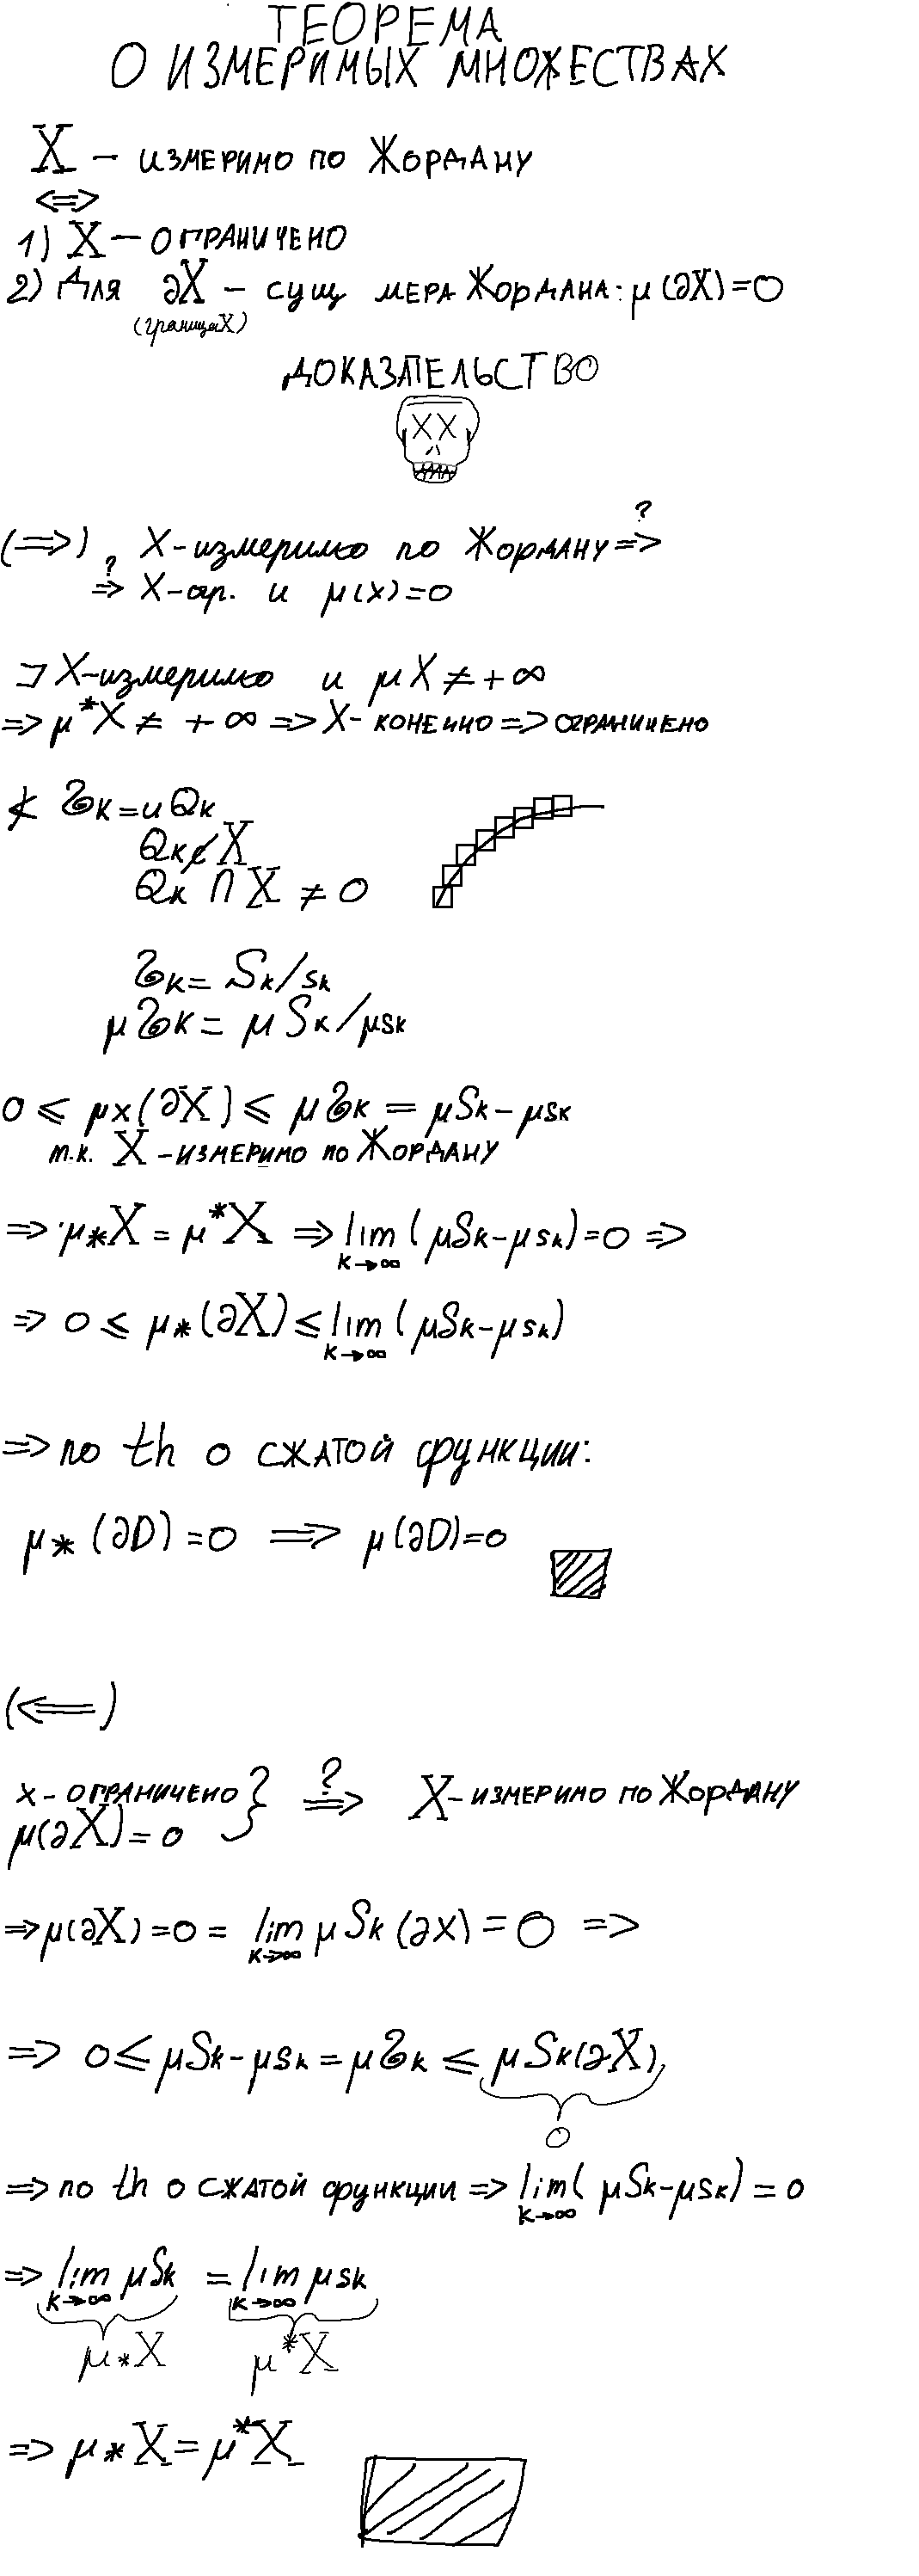 ТЕОРЕМА
О ИЗМЕРИМЫХ МНОЖЕСТВАХ
X – ИЗМЕРИМО ПО ЖОРДАНУ
⇔
1) X – ОГРАНИЧЕНО
2) Для ∂X – сущ МЕРА ЖОРДАНА: μ(∂X)=0
(граница X)
ДОКАЗАТЕЛЬСТВО
XX
(⇒) X-измеримо по ЖОРДАНУ ?⇒
?⇒ X-огр. и μ(x)=0
⊐ X-измеримо и μX ≠ +∞
⇒ μ*X ≠ +∞ ⇒ X- КОНЕЧНО ⇒ ОГРАНИЧЕНО
∢ Ꮛk = ∪ Qk
Qk ⊄ X
Qk ∩ X ≠ 0
Ꮛk = Sk/sk
μᏋk = μSk/μsk
0 ≤ μx(∂X) ≤ μᏋk = μSk – μsk
т.к. X – ИЗМЕРИМО ПО ЖОРДАНУ
⇒ μ*X = μ*X ⇒ lim k→∞ (μSk-μsk)=0 ⇒
⇒ 0 ≤ μ*(∂X) ≤ lim k→∞ (μSk-μsk)
⇒ по th о СЖАТОЙ функции:
μ*(∂D)=0 ⇒ μ(∂D)=0
(⇐)
x - ОГРАНИЧЕНО } ?⇒ X-ИЗМЕРИМО ПО ЖОРДАНУ
μ(∂X)=0
⇒ μ(∂X)=0 = lim k→∞ μSk(∂X) = 0 ⇒
⇒ 0 ≤ μSk-μsk = μᏋk ≤ μSk(∂X)
0
⇒ по th о СЖАТОЙ функции ⇒ lim k→∞ (μSk-μsk) = 0
⇒ lim k→∞ μSk = lim k→∞ μsk
μ*X μ*X
⇒ μ*X = μ*X